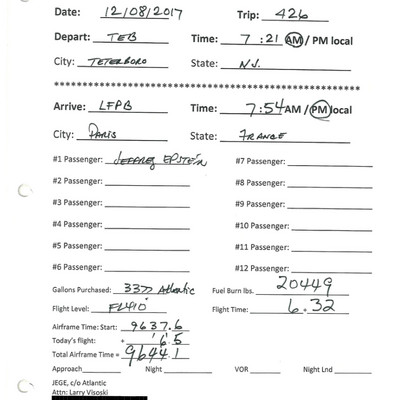 Date: 12/08/2017 Trip: 426
Depart: TEB Time: 7:21 AM / PM local
City: TETERBORO State: N.J.
********************************************************
Arrive: LFPB Time: 7:54 AM / PM local
City: PARIS State: FRANCE
#1 Passenger: JEFFREY EPSTEIN #7 Passenger:
#2 Passenger: #8 Passenger:
#3 Passenger: #9 Passenger:
#4 Passenger: #10 Passenger:
#5 Passenger: #11 Passenger:
#6 Passenger: #12 Passenger:
Gallons Purchased: Atlantic Fuel Burn lbs. 20449
Flight Level: FL410 Flight Time: 6.32
Airframe Time: Start: 9637.6
Today's flight: + 6.5
Total Airframe Time = 9644.1
Approach Night VOR Night Lnd
JEGE, c/o Atlantic
Attn: Larry Visoski